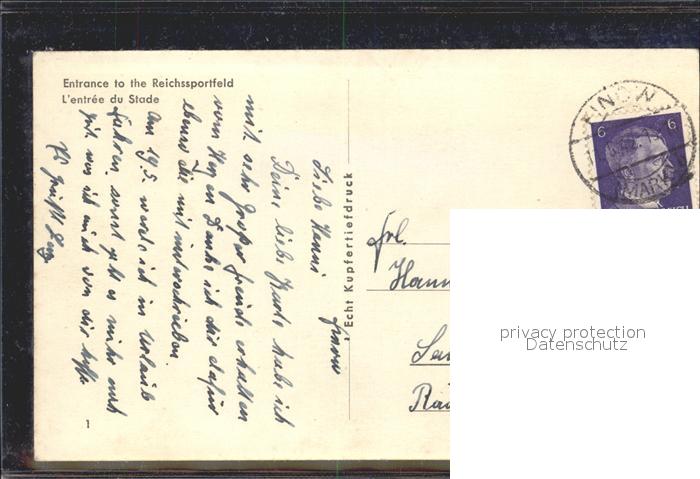 Entrance to the Reichssportfeld
L'entrée du Stade
FINOW
(MARK)
6 6
Echt Kupfertiefdruck
Finow
Liebe Hanni
Deine liebe Karte hab ich
mit sehr großer Freude erhalten
vom Herzen Danke ich dir dafür
ebenso die mit unterschrieben.
Am 19.5. werde ich in Urlaub
fahren. sonst geht es mir noch
gut was ich auch von dir hoffe
Es grüßt
Frl.
Hann
1
privacy protection
Datenschutz